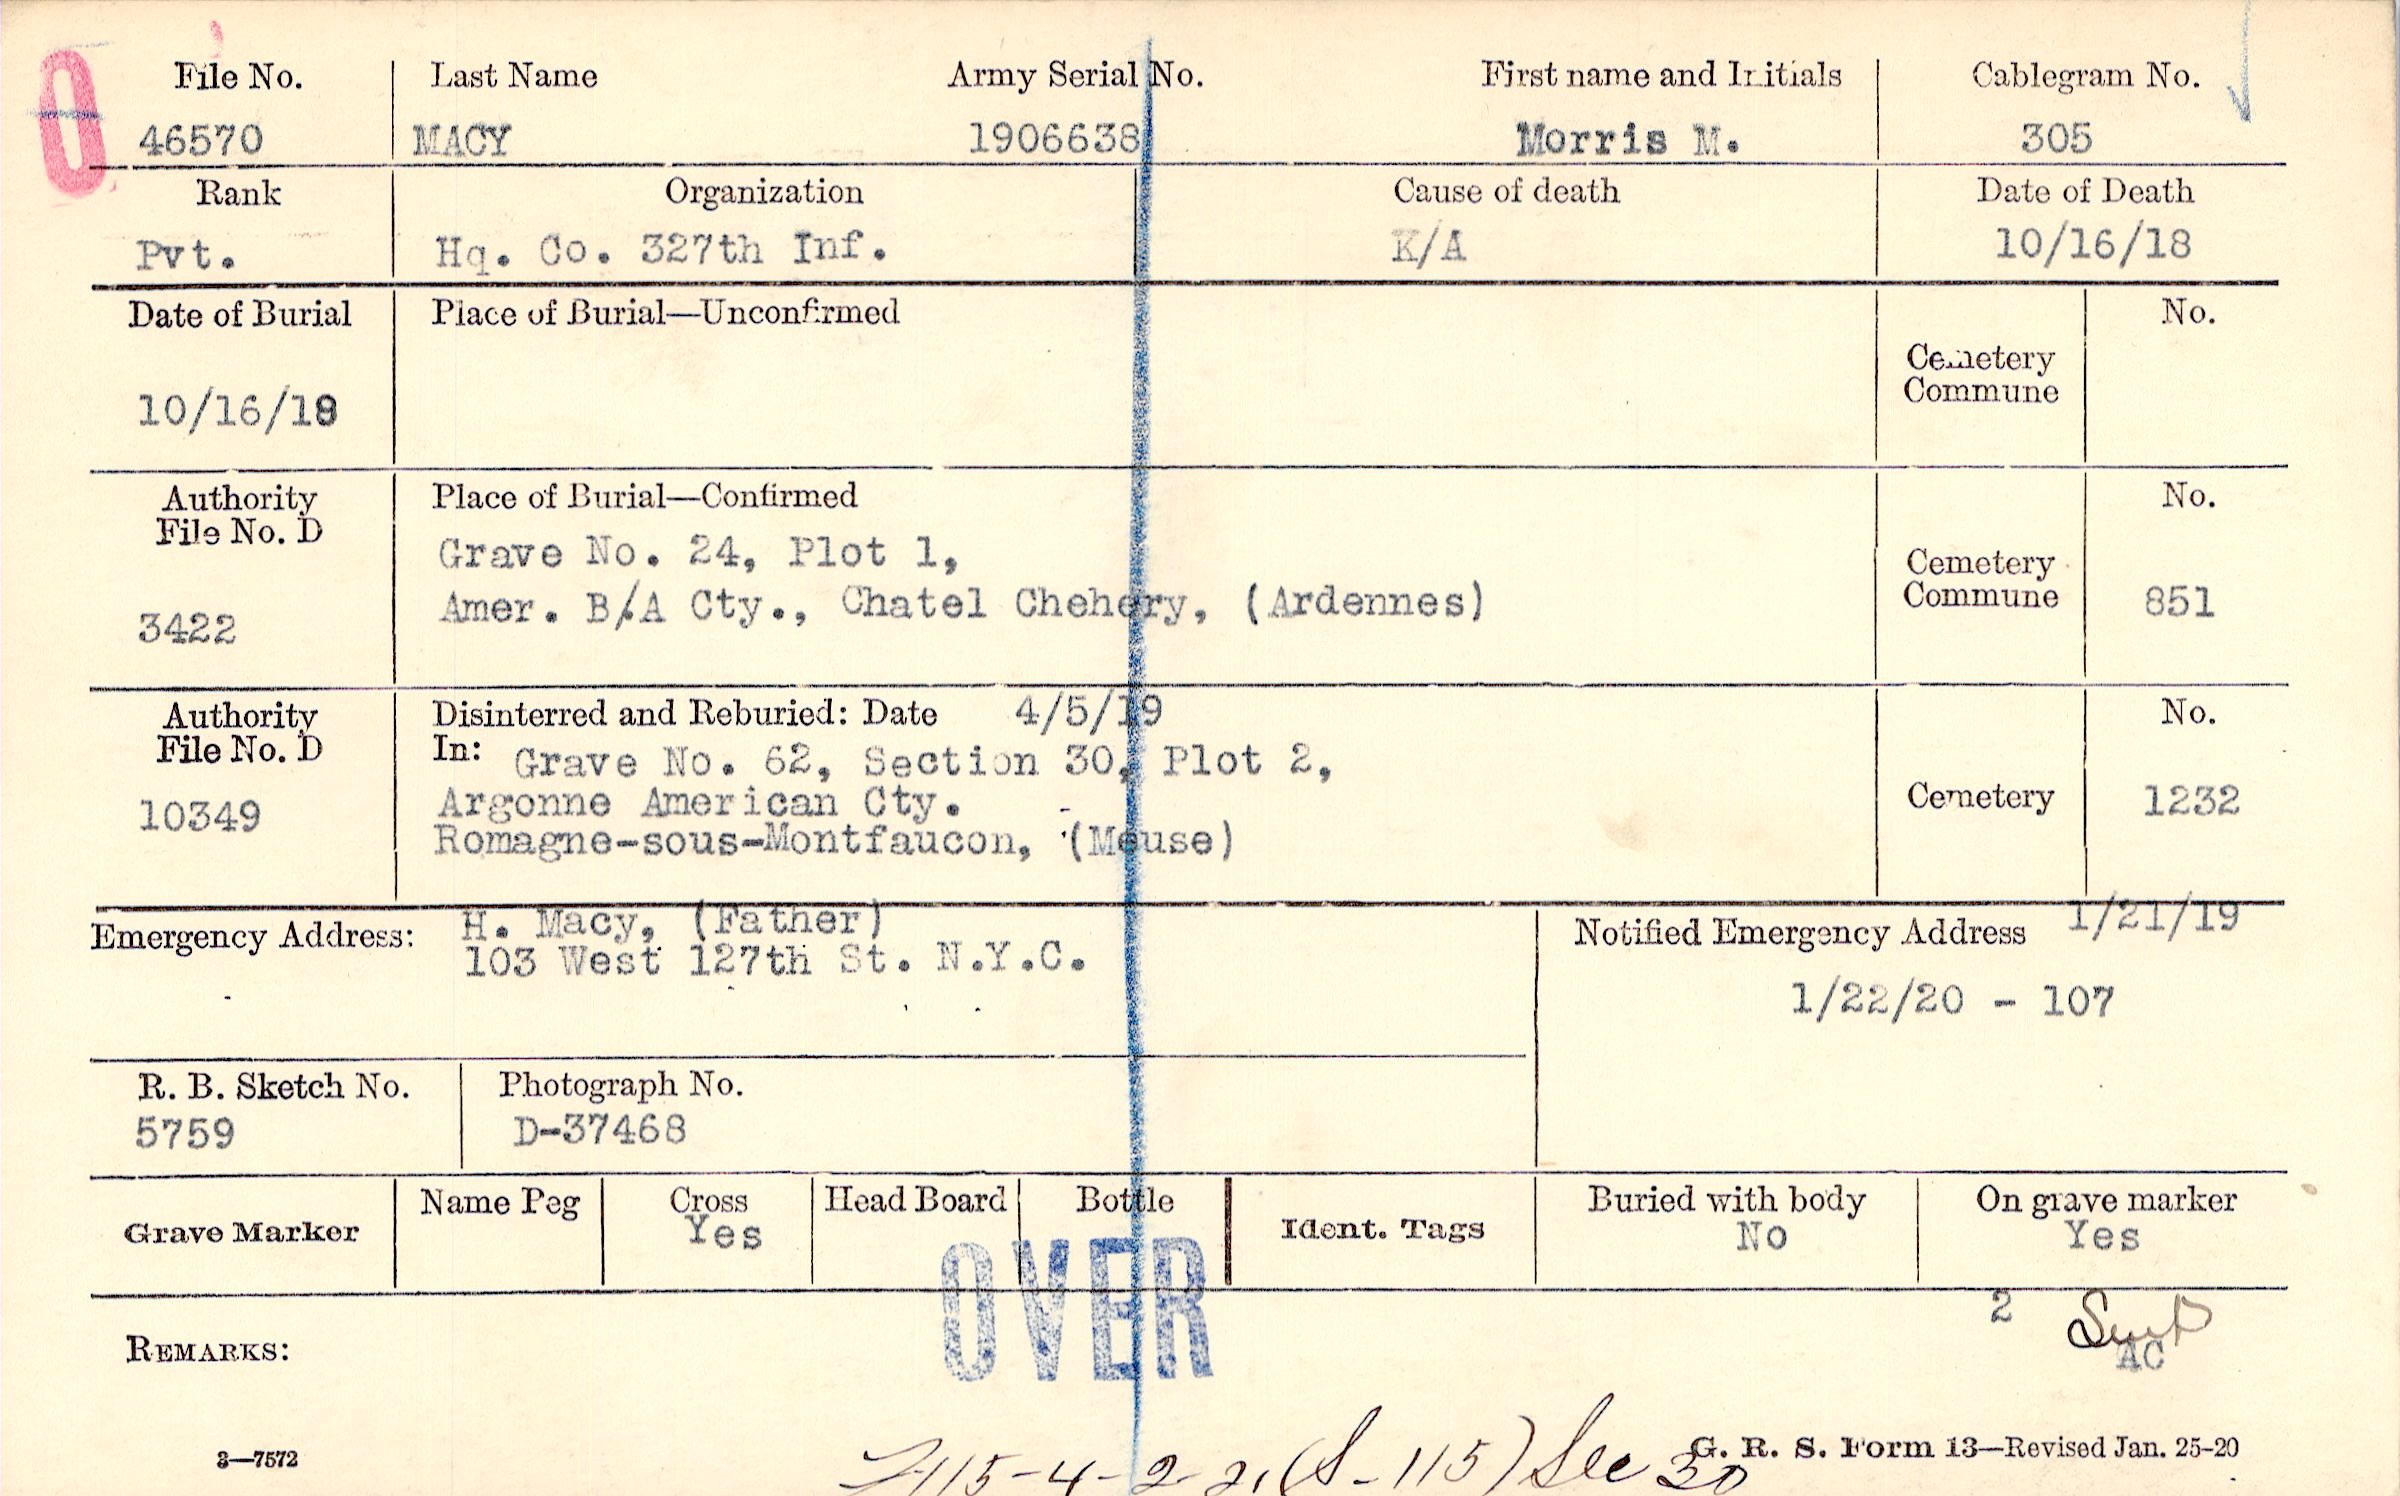 O
File No. Last Name Army Serial No. First name and Initials Cablegram No.
46570 MACY 1906638 Morris M. 305
Rank Organization Cause of death Date of Death
Pvt. Hq. Co. 327th Inf. K/A 10/16/18
Date of Burial Place of Burial—Unconfirmed No.
Cemetery
Commune
10/16/18
Authority Place of Burial—Confirmed No.
File No. D
Grave No. 24, Plot 1,
Cemetery
Amer. B/A Cty., Chatel Chehery, (Ardennes) Commune 851
3422
Authority Disinterred and Reburied: Date 4/5/19 No.
File No. D In: Grave No. 62, Section 30, Plot 2,
10349 Argonne American Cty. Cemetery 1232
Romagne-sous-Montfaucon, (Meuse)
Emergency Address: H. Macy, (Father) Notified Emergency Address 1/21/19
103 West 127th St. N.Y.C.
1/22/20 - 107
R. B. Sketch No. Photograph No.
5759 D-37468
Grave Marker Name Peg Cross Head Board Bottle Ident. Tags Buried with body On grave marker
Yes No Yes
OVER
2
AC
REMARKS:
3—7572 G. R. S. Form 13—Revised Jan. 25-20
115-4-2-2. (S-115) Sec 30